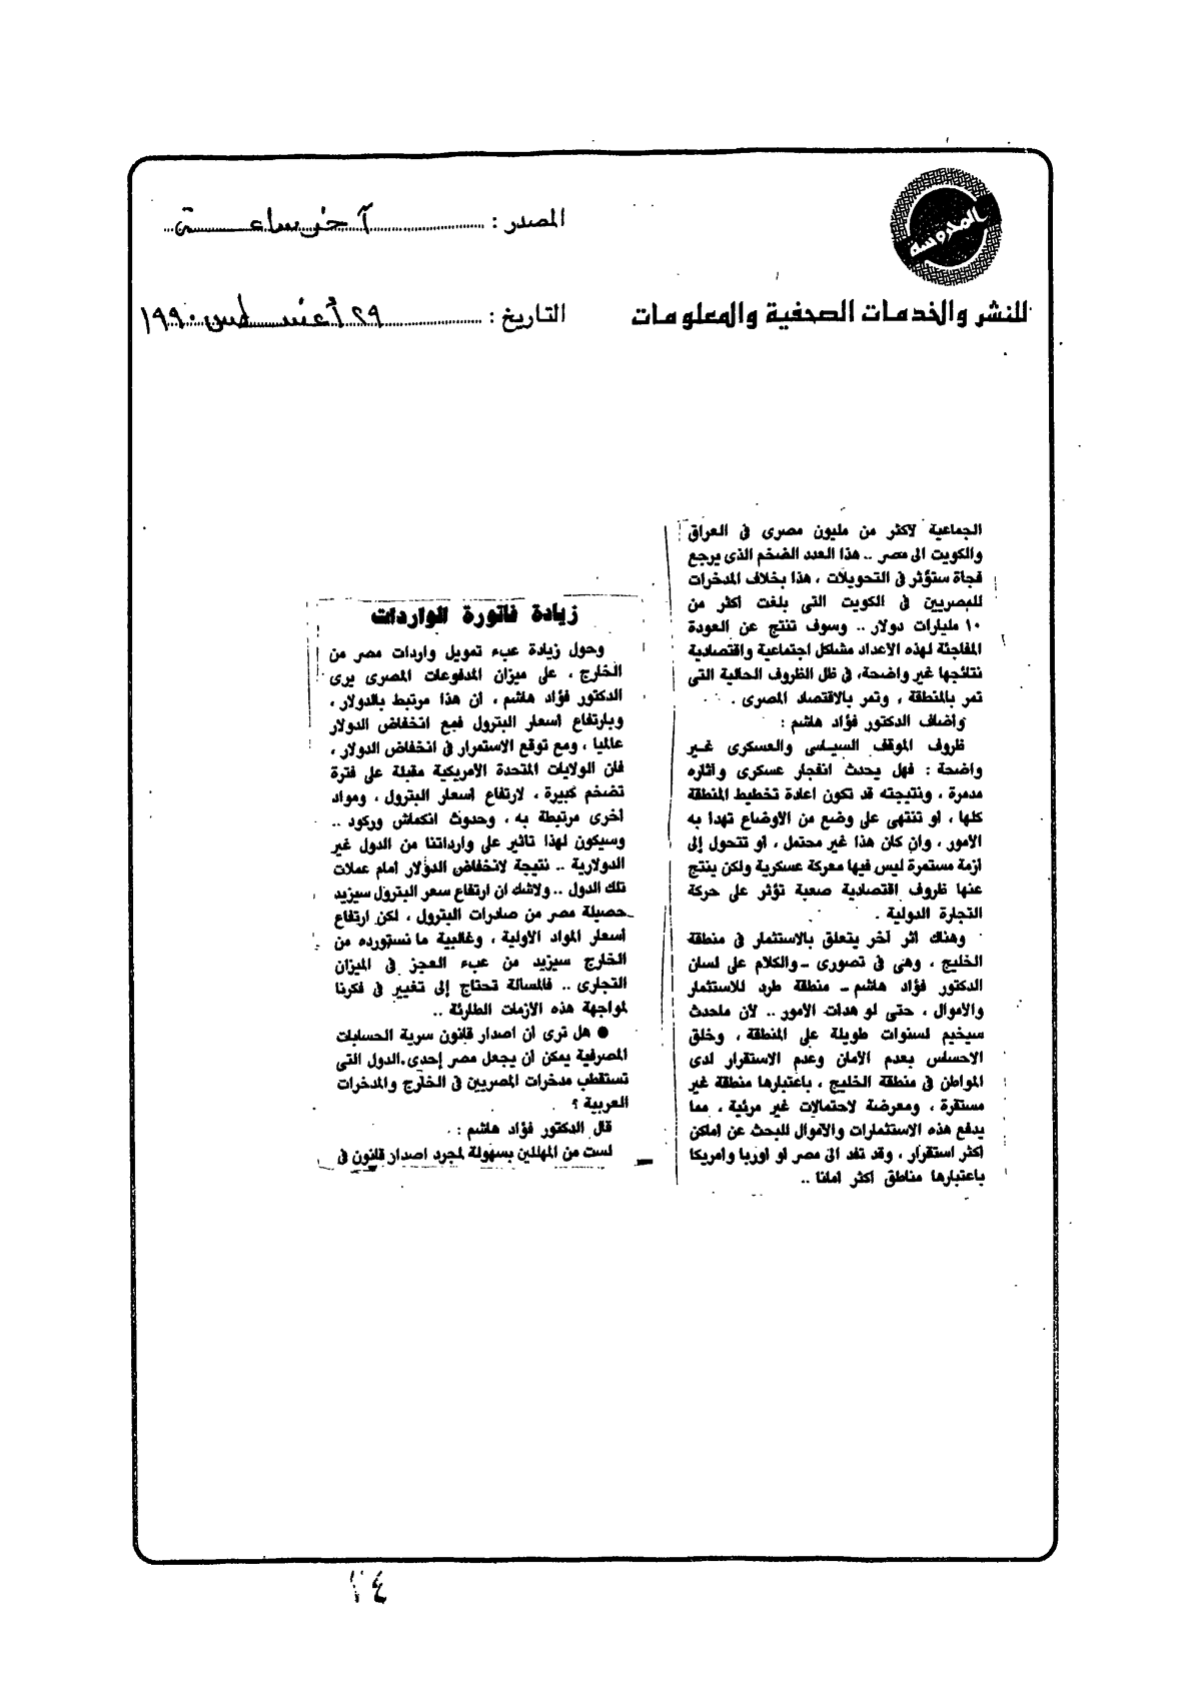 المدوسة
للنشر والخدمات الصحفية والمعلومات
المصدر : آخر ساعة
التاريخ : ٢٩ أغسطس ١٩٩٠
الجماعية لاكثر من مليون مصرى فى العراق
والكويت الى مصر .. هذا العدد الضخم الذى يرجع
فجأة ستؤثر فى التحويلات ، هذا بخلاف المدخرات
للمصريين فى الكويت التى بلغت اكثر من
١٠ مليارات دولار .. وسوف تنتج عن العودة
المفاجئة لهذه الاعداد مشاكل اجتماعية واقتصادية
نتائجها غير واضحة، فى ظل الظروف الحالية التى
تمر بالمنطقة ، وتمر بالاقتصاد المصرى .
واضاف الدكتور فؤاد هاشم :
ظروف الموقف السياسى والعسكرى غير
واضحة : فهل يحدث انفجار عسكرى وآثاره
مدمرة ، ونتيجته قد تكون اعادة تخطيط المنطقة
كلها ، او تنتهى على وضع من الاوضاع تهدا به
الامور ، وان كان هذا غير محتمل ، أو تتحول إلى
ازمة مستمرة ليس فيها معركة عسكرية ولكن ينتج
عنها ظروف اقتصادية صعبة تؤثر على حركة
التجارة الدولية .
وهناك اثر آخر يتعلق بالاستثمار فى منطقة
الخليج ، وهى فى تصورى - والكلام على لسان
الدكتور فؤاد هاشم - منطقة طرد للاستثمار
والاموال ، حتى لو هدات الامور .. لان ماحدث
سيخيم لسنوات طويلة على المنطقة ، وخلق
الاحساس بعدم الأمان وعدم الاستقرار لدى
المواطن فى منطقة الخليج ، باعتبارها منطقة غير
مستقرة ، ومعرضة لاحتمالات غير مرئية ، مما
يدفع هذه الاستثمارات والاموال للبحث عن اماكن
اكثر استقرار ، وقد تفد الى مصر او اوربا وامريكا
باعتبارها مناطق اكثر امانا ..
زيادة فاتورة الواردات
وحول زيادة عبء تمويل واردات مصر من
الخارج ، على ميزان المدفوعات المصرى يرى
الدكتور فؤاد هاشم ، ان هذا مرتبط بالدولار ،
وبارتفاع اسعار البترول فمع انخفاض الدولار
عالميا ، ومع توقع الاستمرار فى انخفاض الدولار ،
فان الولايات المتحدة الأمريكية مقبلة على فترة
تضخم كبيرة ، لارتفاع اسعار البترول ، ومواد
اخرى مرتبطة به ، وحدوث انكماش وركود ..
وسيكون لهذا تاثير على وارداتنا من الدول غير
الدولارية .. نتيجة لانخفاض الدولار امام عملات
تلك الدول .. ولاشك ان ارتفاع سعر البترول سيزيد
حصيلة مصر من صادرات البترول ، لكن ارتفاع
اسعار المواد الاولية ، وغالبية مانستورده من
الخارج سيزيد من عبء العجز فى الميزان
التجارى .. فالمسالة تحتاج إلى تغيير فى فكرنا
لمواجهة هذه الازمات الطارئة ..
● هل ترى ان اصدار قانون سرية الحسابات
المصرفية يمكن ان يجعل مصر إحدى الدول التى
تستقطب مدخرات المصريين فى الخارج والمدخرات
العربية ؟
قال الدكتور فؤاد هاشم :
لست من المهللين بسهولة لمجرد اصدار قانون فى
٢٤